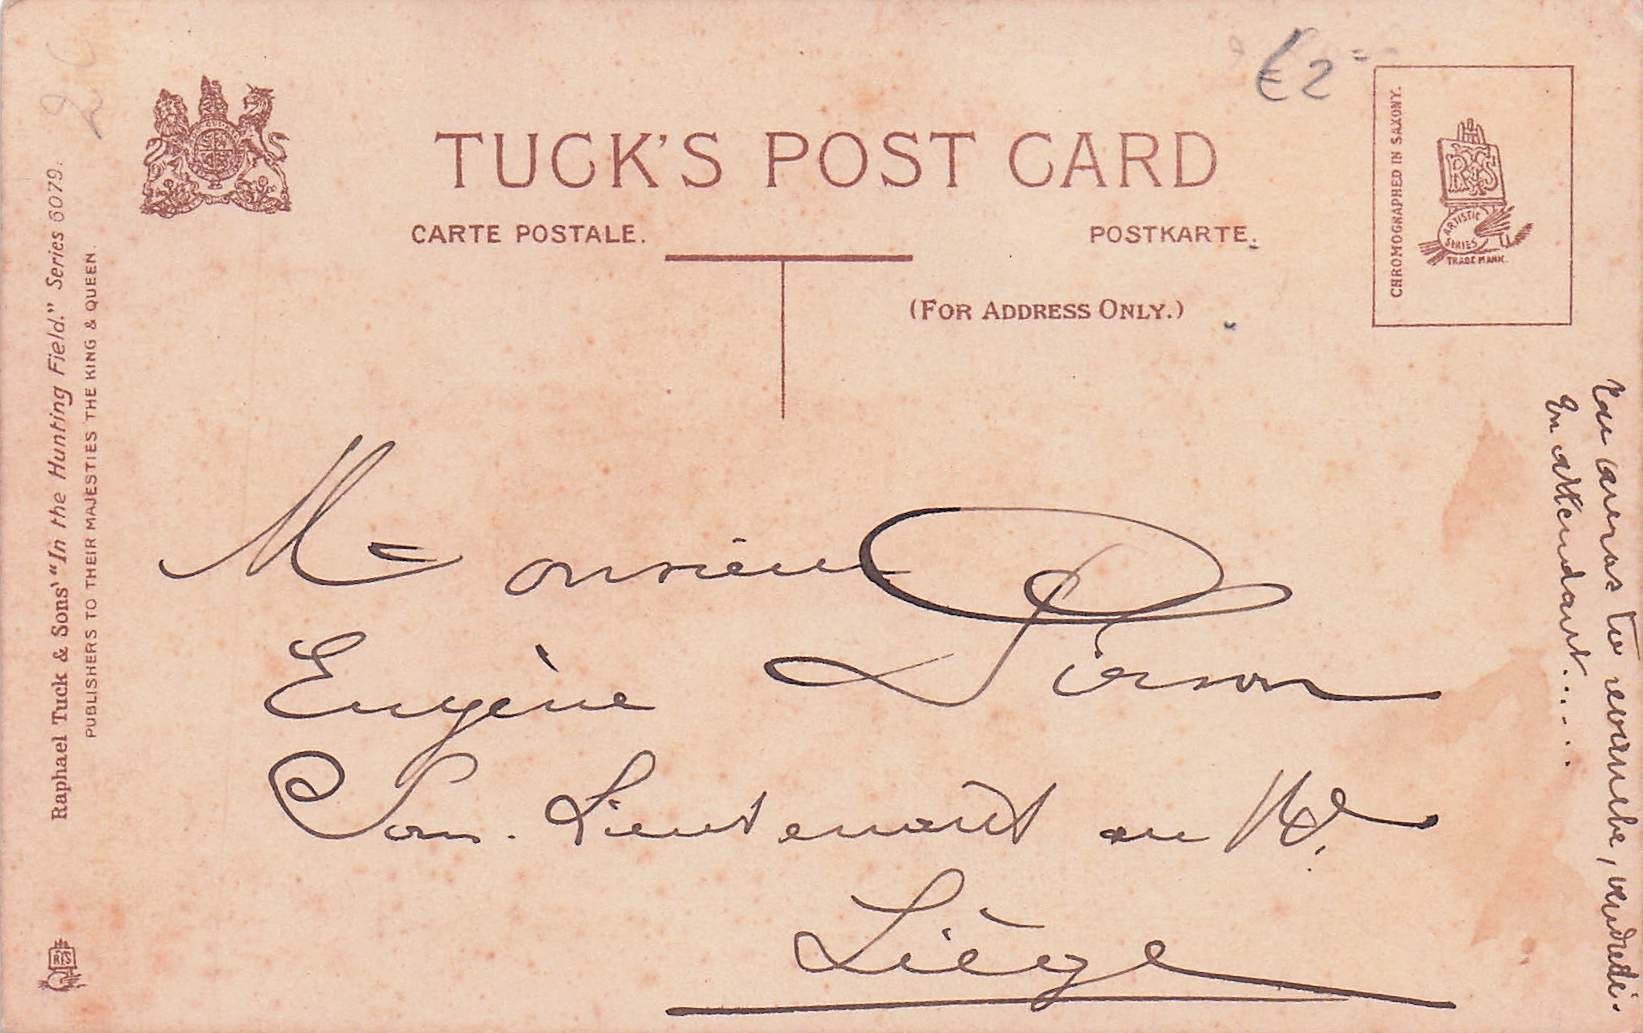 TUCK'S POST CARD
CARTE POSTALE.
POSTKARTE.
(FOR ADDRESS ONLY.)
CHROMOGRAPHED IN SAXONY.
ARTISTIC
SERIES
TRADE MARK.
£2
Raphael Tuck & Sons' "In the Hunting Field." Series 6079.
PUBLISHERS TO THEIR MAJESTIES THE KING & QUEEN.
Monsieur
Eugène Pirson
Sous-Lieutenant au
Liège
auras ta revanche, vendredi.
En attendant.....